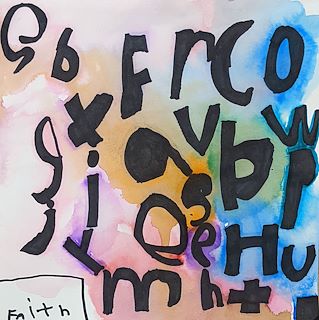 g b F r C O
g x v b w
j i a s p
r Q e H u
m h +
Faith